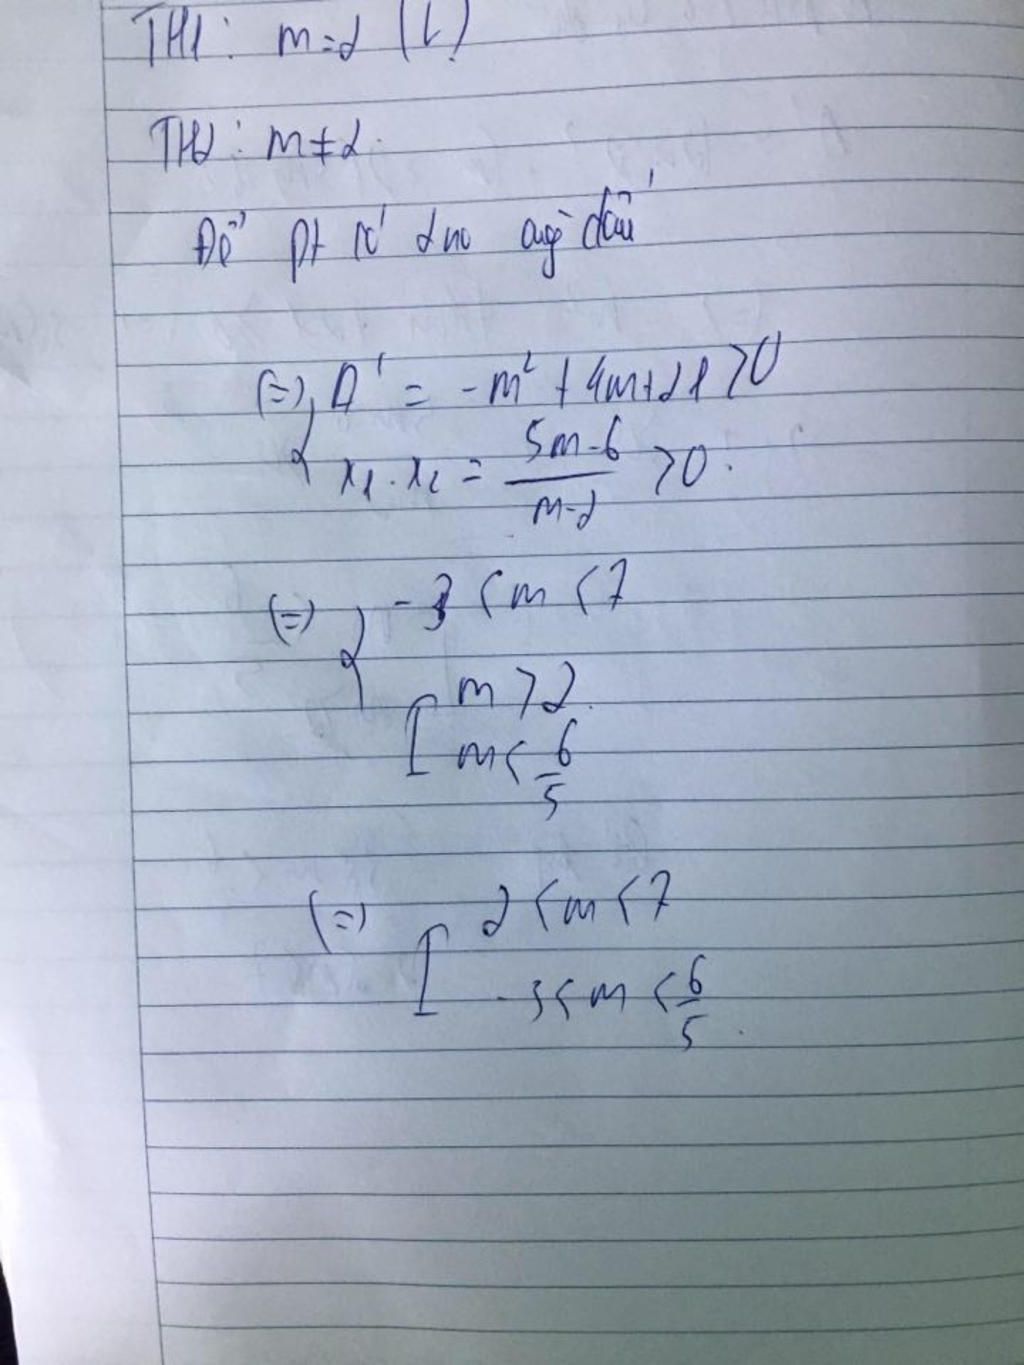 TH1: m=2 (L)
TH2: m≠2.
Để pt có 2 no cùng dấu
(=) { Δ' = -m² + 4m+21 >0
x₁.x₂ = (5m-6)/(m-2) >0.
(=) { -3 <m <7
[ m >2.
m< 6/5
(=) [ 2 <m <7
-3<m < 6/5.